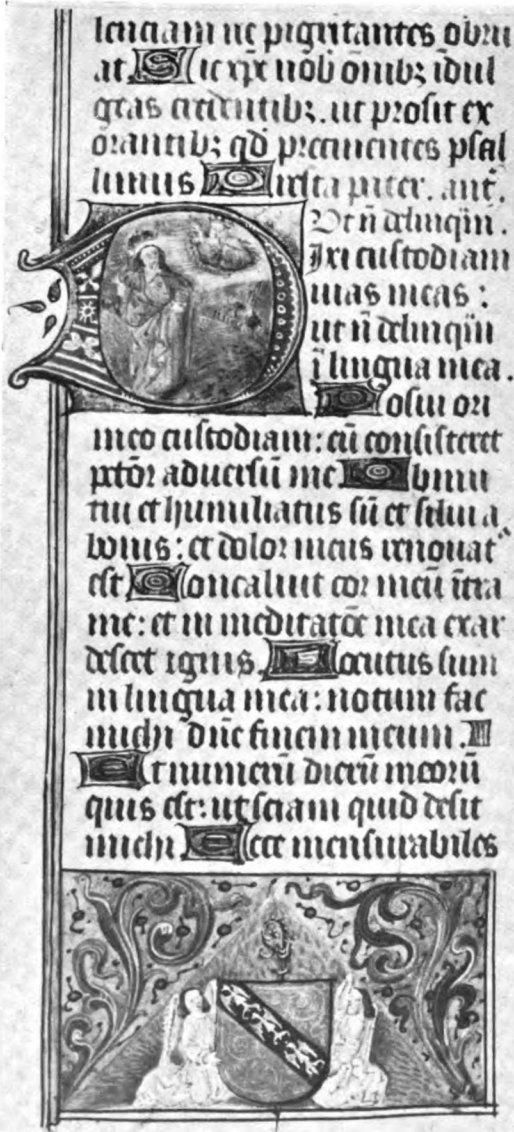 lenciam ne pigritantes obru
at Sic xp̄e nob̄ om̄ibꝫ īdul
geas credentibꝫ. ut prosit ex
orantibꝫ qd̄ precinentes psal
limus Presta pater. ant̄.
Vt n̄ delinquā.
Dixi custodiam
uias meas :
ut n̄ delinquā
ī lingua mea.
Posui ori
meo custodiam: cū consisteret
pctōr aduersū me Obmu
tui et humiliatus sū et silui a
bonis: et dolor meus renouatꝰ
est Concaluit cor meū ītra
me: et in meditatōe mea exar
descet ignis. Locutus sum
in lingua mea: notum fac
michi dn̄e finem meum.
Et numerū dierū meorū
quis est: ut sciam quid desit
michi Ecce mensurabiles